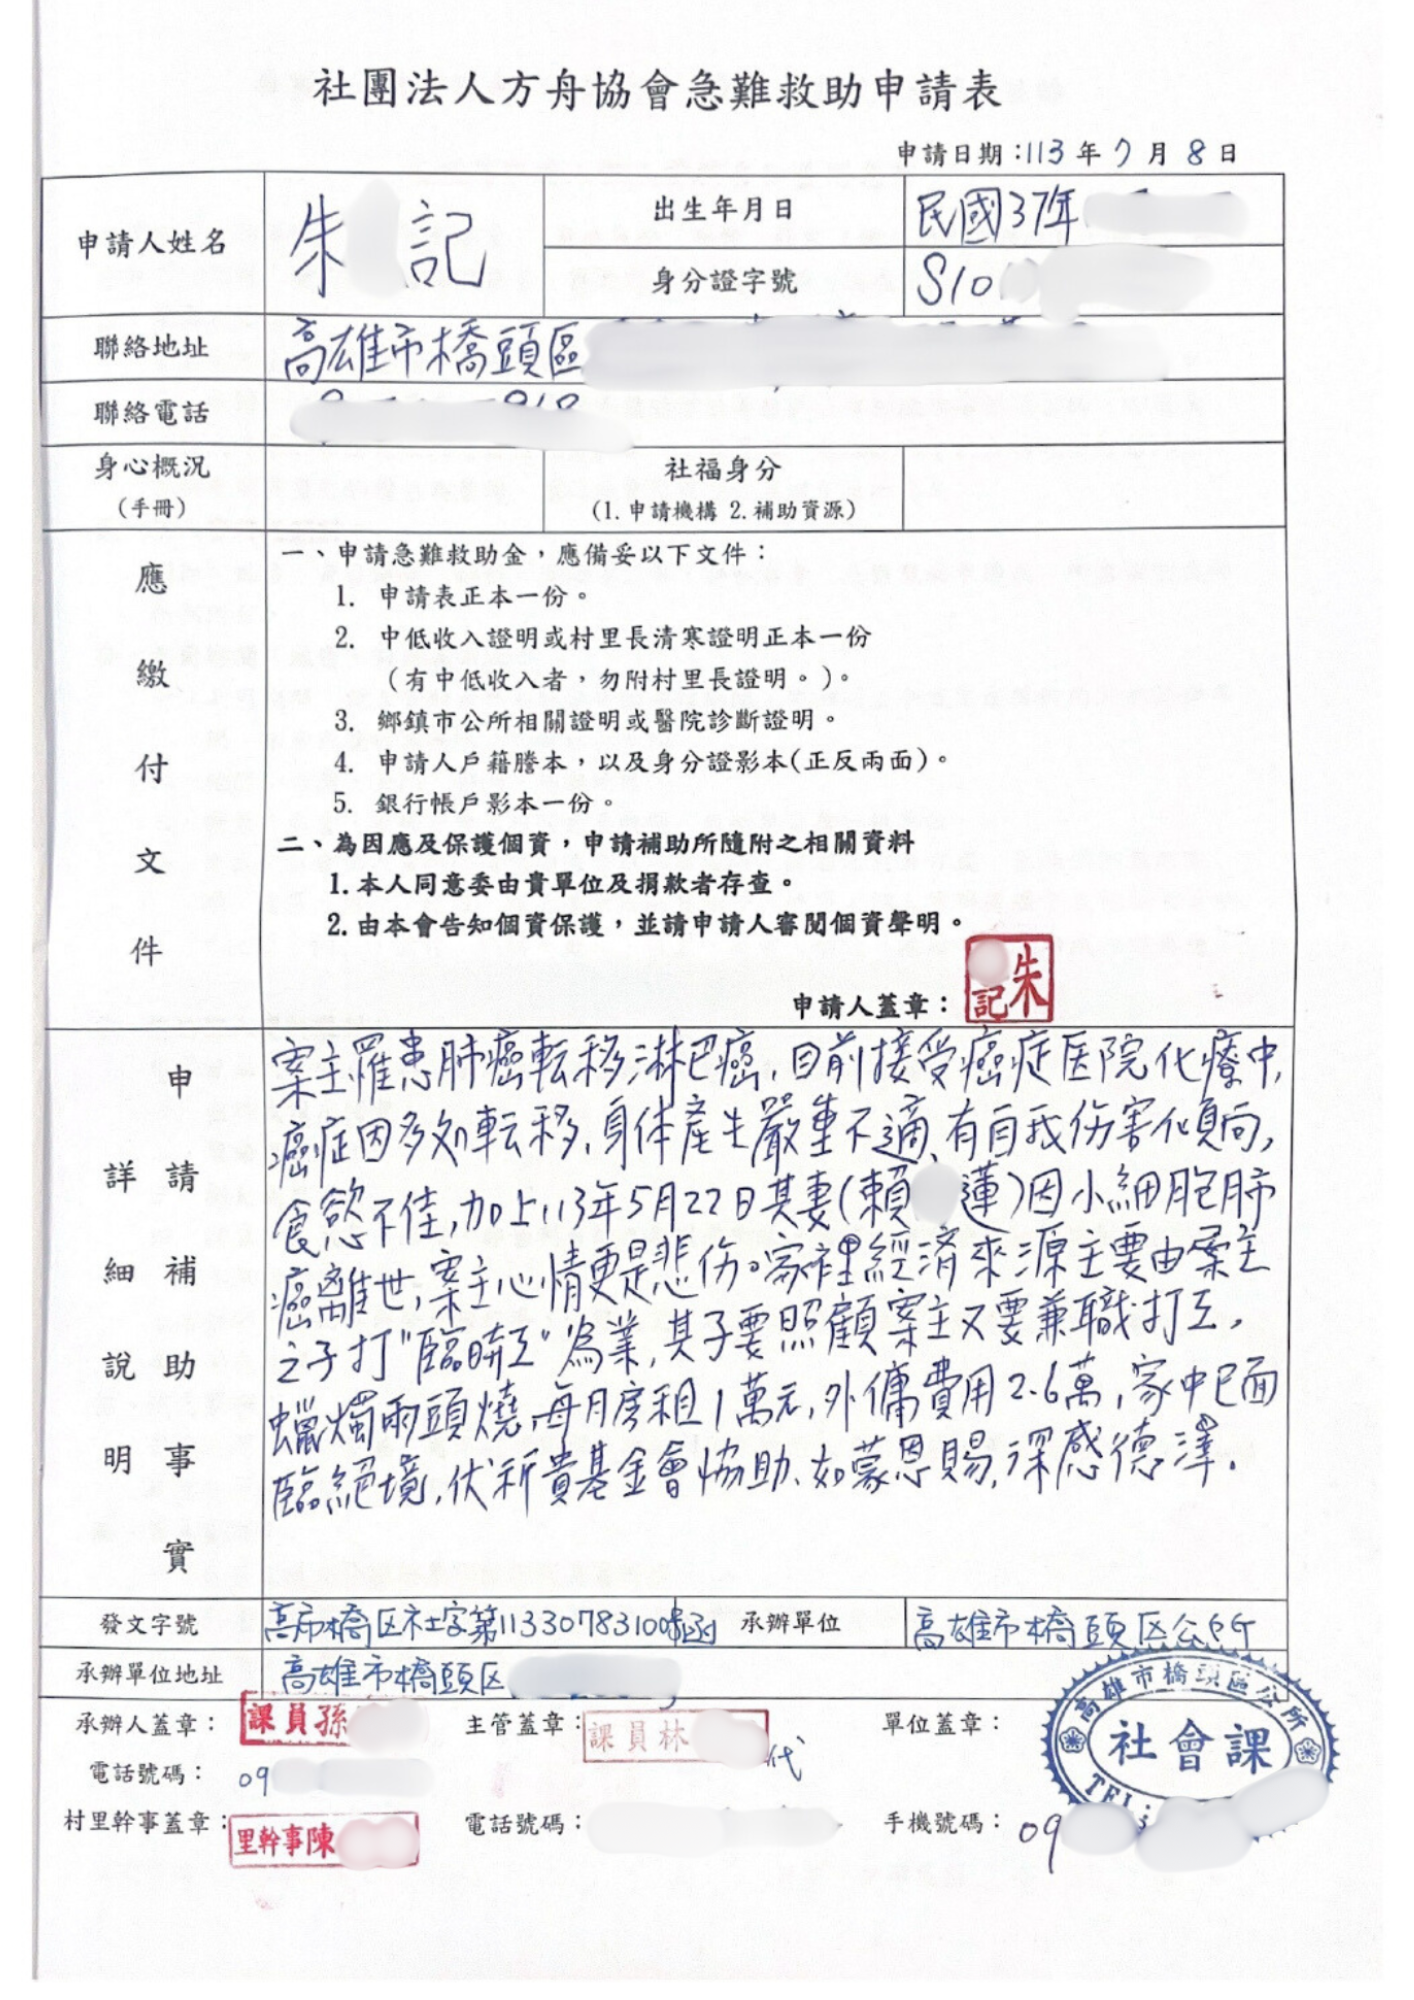 社團法人方舟協會急難救助申請表
申請日期：113年7月8日
申請人姓名 朱 記 出生年月日 民國37年
身分證字號 S10
聯絡地址 高雄市橋頭區
聯絡電話
身心概況 社福身分
(手冊) (1.申請機構 2.補助資源)
應繳付文件
一、申請急難救助金，應備妥以下文件：
1. 申請表正本一份。
2. 中低收入證明或村里長清寒證明正本一份
(有中低收入者，勿附村里長證明。)。
3. 鄉鎮市公所相關證明或醫院診斷證明。
4. 申請人戶籍謄本，以及身分證影本(正反兩面)。
5. 銀行帳戶影本一份。
二、為因應及保護個資，申請補助所隨附之相關資料
1.本人同意委由貴單位及捐款者存查。
2.由本會告知個資保護，並請申請人審閱個資聲明。
申請人蓋章： 朱 記
申請補助事實詳細說明
案主罹患肺癌転移淋巴癌，目前接受癌症医院化療中，
癌症因多処転移，身体產生嚴重不適、有自我伤害化傾向，
食慾不佳，加上113年5月22日其妻(賴 蓮)因小細胞肺
癌離世，案主心情更是悲伤。家裡經済來源主要由案主
之子打"臨時工"為業，其子要照顧案主又要兼職打工，
蠟燭兩頭燒，每月房租1萬元，外傭費用2.6萬，家中已面
臨絕境，伏祈貴基金會協助、如蒙恩賜，深感德澤。
發文字號 高市橋区社字第11330783100號函 承辦單位 高雄市橋頭区公所
承辦單位地址 高雄市橋頭区
承辦人蓋章： 課員孫 主管蓋章： 課員林 代 單位蓋章： 高雄市橋頭區公所 社會課 TEL:
電話號碼： 09
村里幹事蓋章： 里幹事陳 電話號碼： 手機號碼： 09